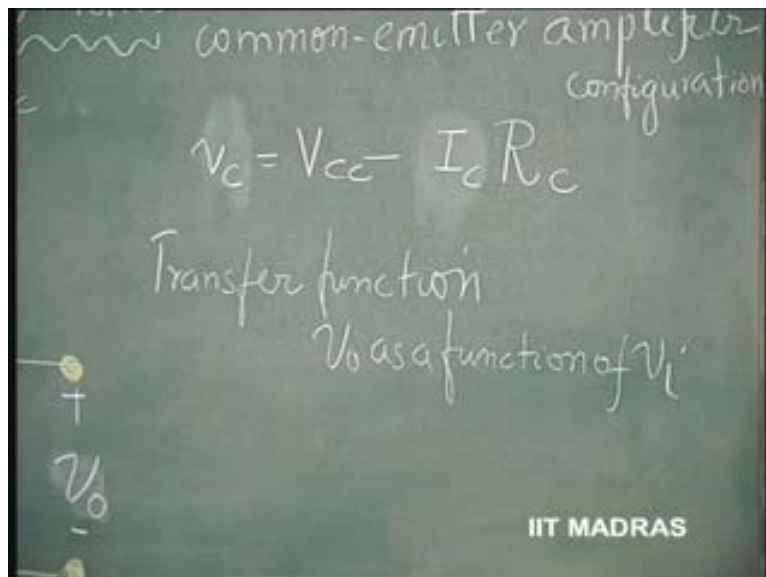 common-emitter amplifier
configuration
c
v_c = V_CC - I_C R_C
Transfer function
v_o as a function of v_i
+
v_o
-
IIT MADRAS